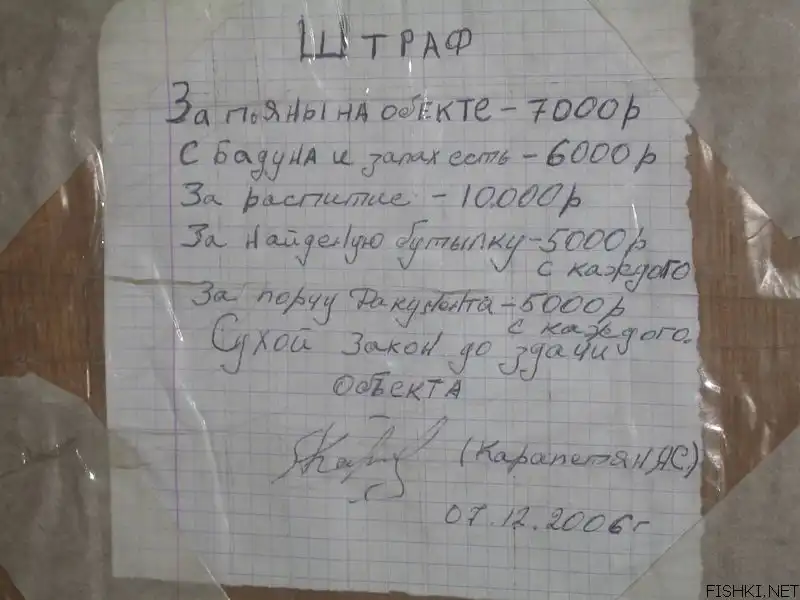 ШТРАФ
За пояны на обекте – 7000р
С бадуна и запах есть – 6000р
За распитие – 10.000р
За найденую бутылку – 5000р
с каждого
За порчу дакумента – 5000р
с каждого.
Сухой закон до здачи
объекта
(Карапетян АС)
07.12.2006г
FISHKI.NET